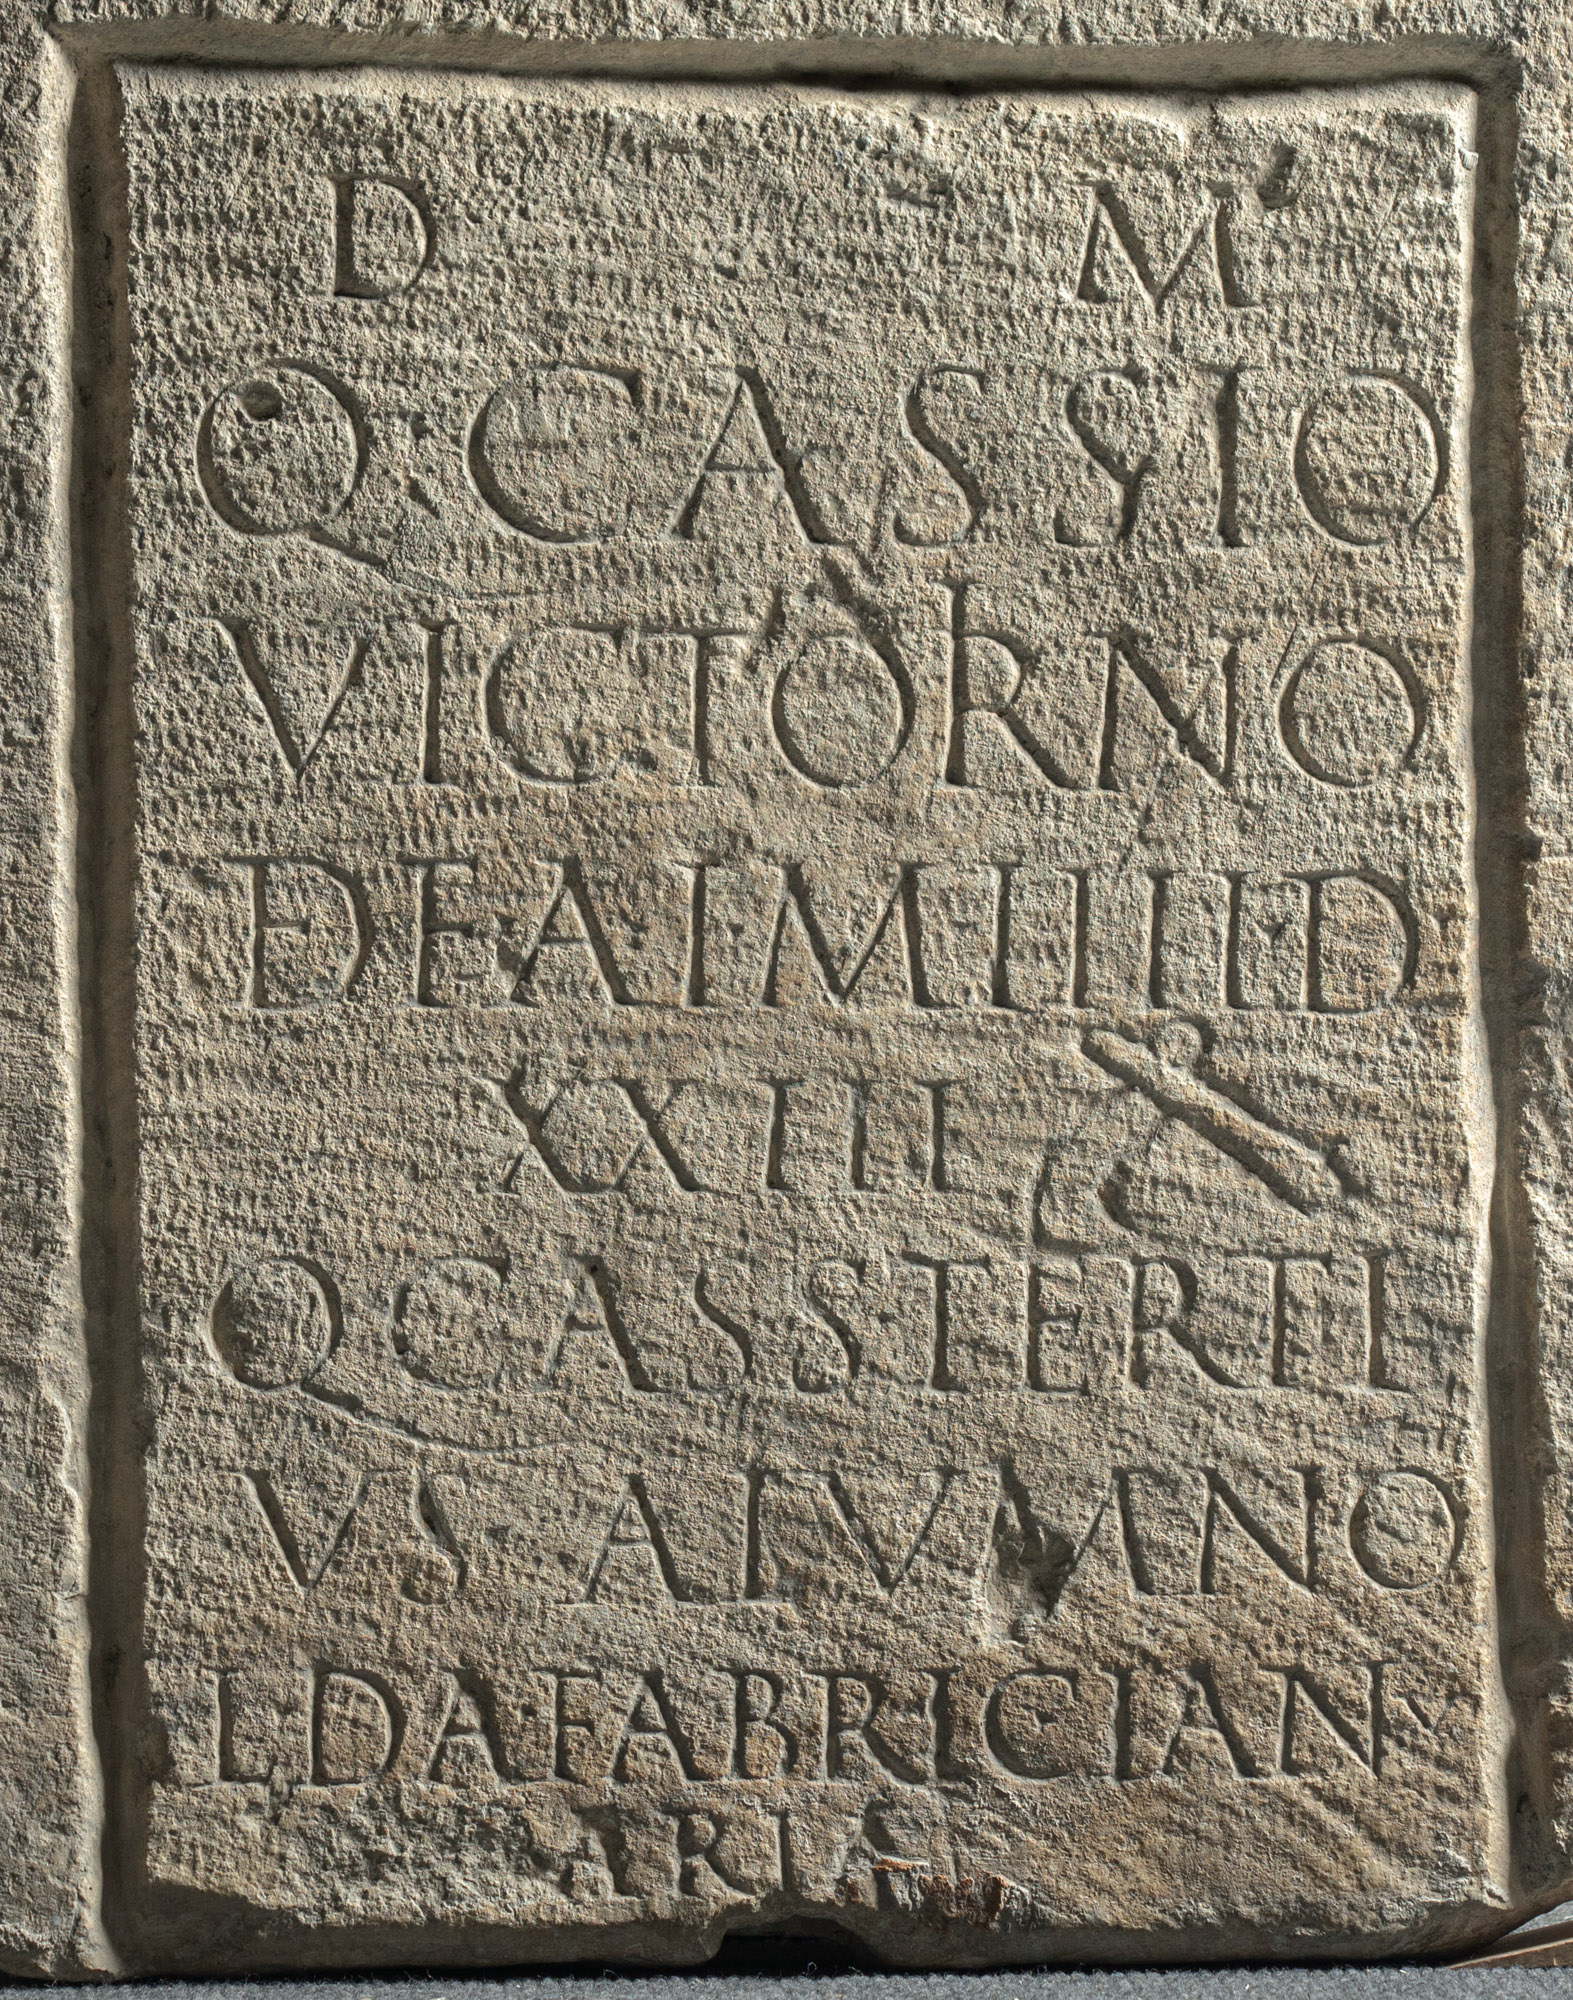 D M
Q CASSIO
VICTORNO
DEAIMIIIID
XXIII
Q CASSTERTI
VS AIVMNO
LDAFABRICIANV
ARIA